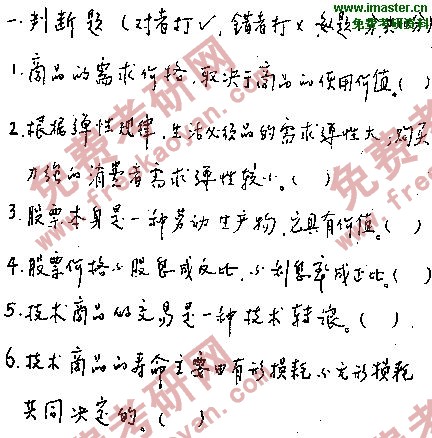 www.imaster.cn
免费考研资料
一.判断题(对者打✓,错者打×
1.商品的需求价格,取决于商品的使用价值。( )
2.根据弹性规律,生活必须品的需求弹性大,购买
力强的消费者需求弹性较小。( )
3.股票本身是一种劳动生产物,它具有价值。( )
4.股票价格与股息成反比,与利息率成正比。( )
5.技术商品的交易是一种技术转让。( )
6.技术商品的寿命主要由有形损耗与无形损耗
共同决定的。( )
免费考研网
www.freekaoyan.com